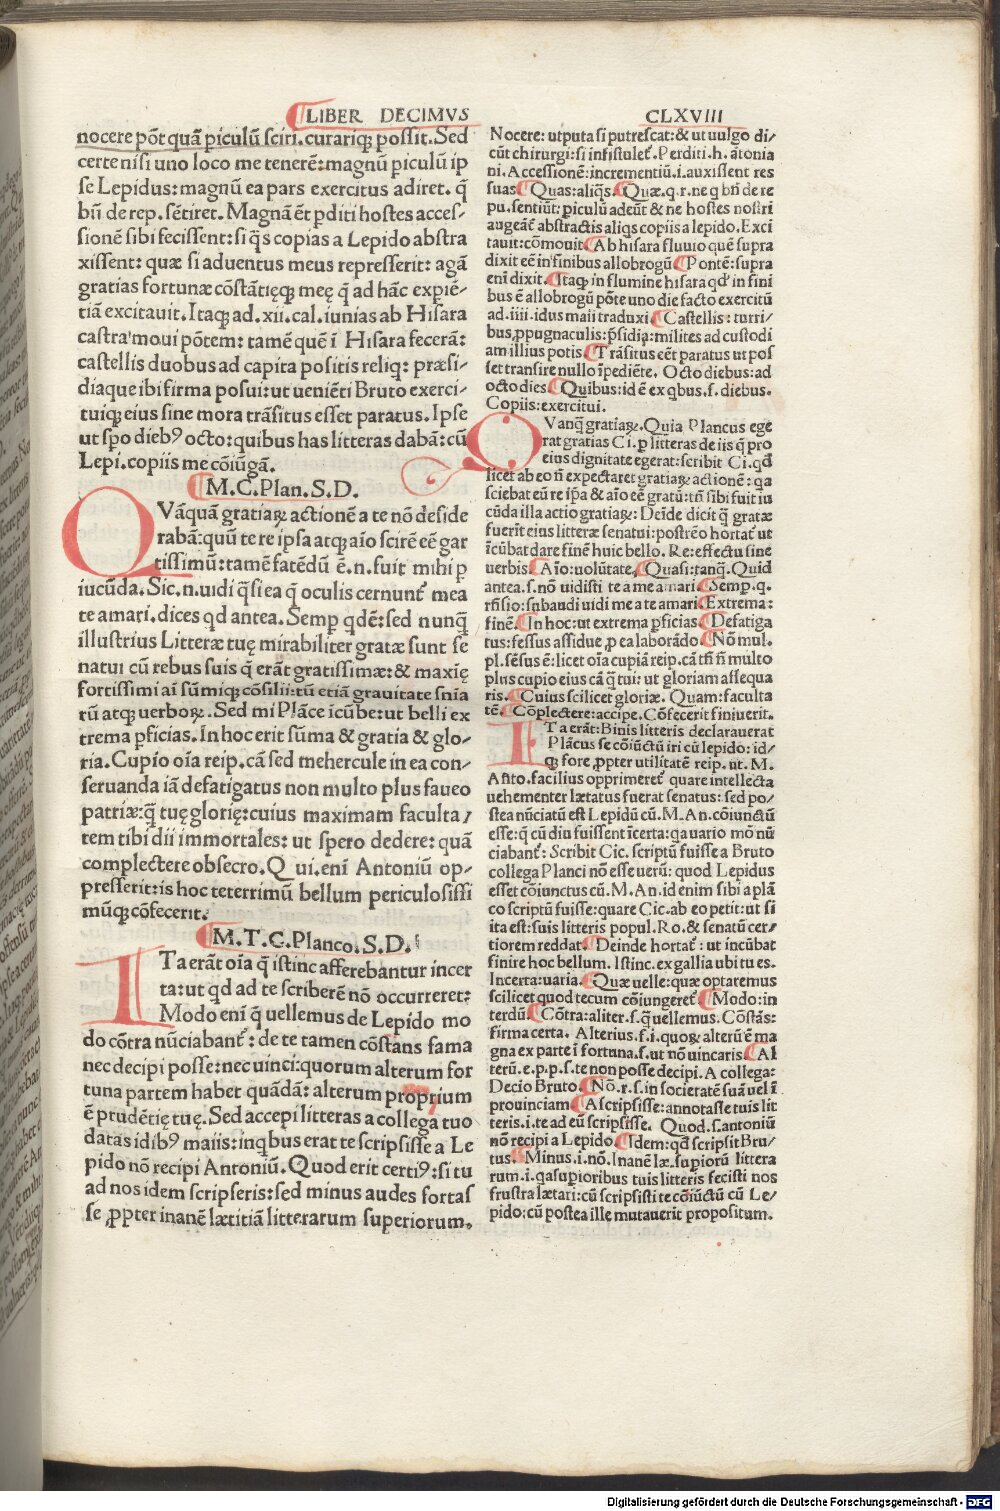 LIBER DECIMVS
CLXVIII
nocere põt quã piculũ sciri. curariq; possit. Sed
certe nisi uno loco me tenerẽ: magnũ piculũ ip
se Lepidus: magnũ ea pars exercitus adiret. q̃
bñ de rep. sẽtiret. Magnã ẽt pditi hostes acces/
sionẽ sibi fecissent: si q̃s copias a Lepido abstra
xissent: quæ si aduentus meus represserit: agã
gratias fortunæ cõstãtięq; meę q̃ ad hãc expiẽ/
tiã excitauit. Itaq; ad. xii. cal. iunias ab Hisara
castra moui põtem: tamẽ quẽ ĩ Hisara fecerã:
castellis duobus ad capita positis reliq: præsi/
diaque ibi firma posui: ut ueniẽti Bruto exerci/
tuiq; eius sine mora trãsitus esset paratus. Ipse
ut spo dieb9 octo: quibus has litteras dabã: cũ
Lepi. copiis me cõiũgã.
M. C. Plan. S. D.
QVãquã gratiaꝝ actionẽ a te nõ deside
rabã: quũ te re ipsa atq; aĩo scirẽ eẽ gar
tissimũ: tamẽ fatẽdũ ẽ. n. fuit mihi p
iucũda. Sic. n. uidi q̃si ea q̃ oculis cernunt᷑ mea
te amari. dices qd antea. Semp qdẽ: sed nunq̃
illustrius Litteræ tuę mirabiliter gratæ sunt se
natui cũ rebus suis q̃ erãt gratissimæ: & maxię
fortissimi aĩ sũmiq; cõsilii: tũ etiã grauitate snĩa
rũ atq; uerboꝝ. Sed mi Plãce ĩcũbe: ut belli ex
trema pficias. In hoc erit sũma & gratia & glo/
ria. Cupio oĩa reip. cã sed mehercule in ea con/
seruanda iã defatigatus non multo plus faueo
patriæ: q̃ tuę glorię: cuius maximam faculta/
tem tibi dii immortales: ut spero dedere: quã
complectere obsecro. Q ui. enĩ Antoniũ op/
presserit: is hoc teterrimũ bellum periculosissi
mũq; cõfecerit.
M. T. C. Planco. S. D.
ITa erãt oĩa q̃ istinc afferebantur incer
ta: ut qd ad te scriberẽ nõ occurreret:
Modo enĩ q̃ uellemus de Lepido mo
do cõtra nũciabant᷑: de te tamen cõstans fama
nec decipi posse: nec uinci: quorum alterum for
tuna partem habet quãdã: alterum proprium
ẽ prudẽtię tuę. Sed accepi litteras a collega tuo
datas idib9 maiis: in qbus erat te scripsisse a Le
pido nõ recipi Antoniũ. Quod erit certi9: si tu
ad nos idem scripseris: sed minus audes fortas
se ꝓpter inanẽ lætitiã litterarum superiorum.
Nocere: utputa si putrescat: & ut uulgo di/
cũt chirurgi: si infistulet᷑. Perditi. h. ãtonia
ni. Accessionẽ: incrementiũ. i. auxissent res
suas Quas: aliqs. Quæ. q. r. ne q bñ de re
pu. sentiũt: piculũ adeũt & ne hostes nostri
augeãt᷑ abstractis aliqs copiis a lepido. Exci
tauit: cõmouit. Ab hisara fluuio quẽ supra
dixit eẽ in finibus allobrogũ Pontẽ: supra
enĩ dixit. Itaq; in flumine hisara qd in fini
bus ẽ allobrogũ põte uno die facto exercitũ
ad. iiii. idus maii traduxi. Castellis: turri/
bus, ꝓpugnaculis: p̃sidia: milites ad custodi
am illius potis Trãsitus eẽt paratus ut pos
set transire nullo ĩpediẽte. Octo diebus: ad
octo dies. Quibus: id ẽ ex qbus. s. diebus.
Copiis: exercitui.
QVanq̃ gratiaꝝ. Quia Plancus ege
rat gratias Ci. p litteras de iis q̃ pro
eius dignitate egerat: scribit Ci. qd
licet ab eo ñ expectaret gratiaꝝ actionẽ: qa
sciebat eũ re ipa & aĩo eẽ gratũ: tñ sibi fuit iu
cũda illa actio gratiaꝝ: Deĩde dicit q̃ gratæ
fuerĩt eius litteræ senatui: postrẽo hortat᷑ ut
ĩcũbat dare finẽ huic bello. Re: effectu sine
uerbis. Aĩo: uolũtate. Quasi: tanq̃. Quid
antea. s. nõ uidisti te a me amari. Semp. q.
rñsio: sp̃ haud ĩ uidi me a te amari Extrema:
finẽ. In hoc: ut extrema pficias. Defatiga
tus: fessus assidue ꝓ ea laborãdo Nõ mul.
pl. sẽsus ẽ: licet oĩa cupiã reip. cã tñ ñ multo
plus cupio eius cã q̃ tui: ut gloriam assequa
ris. Cuius scilicet gloriæ. Quam: faculta
tẽ. Cõplectere: accipe. Cõfecerit finiuerit.
ITa erãt: Binis litteris declarauerat
Plãcus se cõiũctũ iri cũ lepido: id/
q; fore ꝓpter utilitatẽ reip. ut. M.
Anto. facilius opprimeret᷑ quare intellecta
uehementer lætatus fuerat senatus: sed po/
stea nũciatũ est Lepidũ cũ. M. An. cõiunctũ
esse: q̃ cũ diu fuissent ĩcerta: qa uario mõ nũ
ciabant᷑: Scribit Cic. scriptũ fuisse a Bruto
collega Planci nõ esse uerũ: quod Lepidus
esset cõiunctus cũ. M. An. id enim sibi a plã
co scriptũ fuisse: quare Cic. ab eo petit: ut si
ita est: suis litteris popul. Ro. & senatũ cer/
tiorem reddat. Deinde hortat᷑: ut incũbat
finire hoc bellum. Istinc. ex gallia ubi tu es.
Incerta: uaria. Quæ uelle: quæ optaremus
scilicet quod tecum cõiungeret᷑ Modo: in
terdũ. Cõtra: aliter. s. q̃ uellemus. Cõstãs:
firma certa. Alterius. s. i. quoꝝ alterũ ẽ ma
gna ex parte ĩ fortuna. s. ut nõ uincaris. Al
terũ. e. p. p. s. te non posse decipi. A collega:
Decio Bruto. Nõ. r. s. in societatẽ suã uel ĩ
prouinciam A scripsisse: annotasse tuis lit
teris. i. te ad eũ scripsisse. Quod. s. antoniũ
nõ recipi a Lepido. Idem: qd scripsit Bru/
tus. Minus. i. nõ. Inanẽ læ. supiorũ littera
rum. i. qa supioribus tuis litteris fecisti nos
frustra lætari: cũ scripsisti te cõiũctũ cũ Le/
pido: cũ postea ille mutauerit propositum.
Digitalisierung gefördert durch die Deutsche Forschungsgemeinschaft - DFG